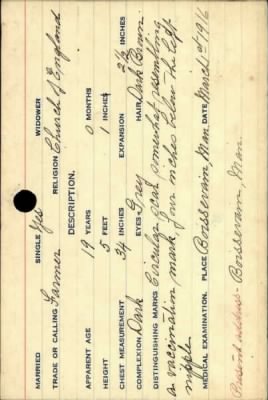 MARRIED SINGLE Yes WIDOWER
TRADE OR CALLING Farmer RELIGION Church of England
DESCRIPTION.
APPARENT AGE 19 YEARS 0 MONTHS
HEIGHT 5 FEET 1 INCHES
CHEST MEASUREMENT 34 INCHES EXPANSION 2½ INCHES
COMPLEXION Dark EYES Grey HAIR Dark Brown
DISTINGUISHING MARKS Circular scar somewhat resembling
a vaccination mark four inches below the left
nipple
MEDICAL EXAMINATION. PLACE Boissevain, Man. DATE March 1916
Present address - Boissevain, Man.